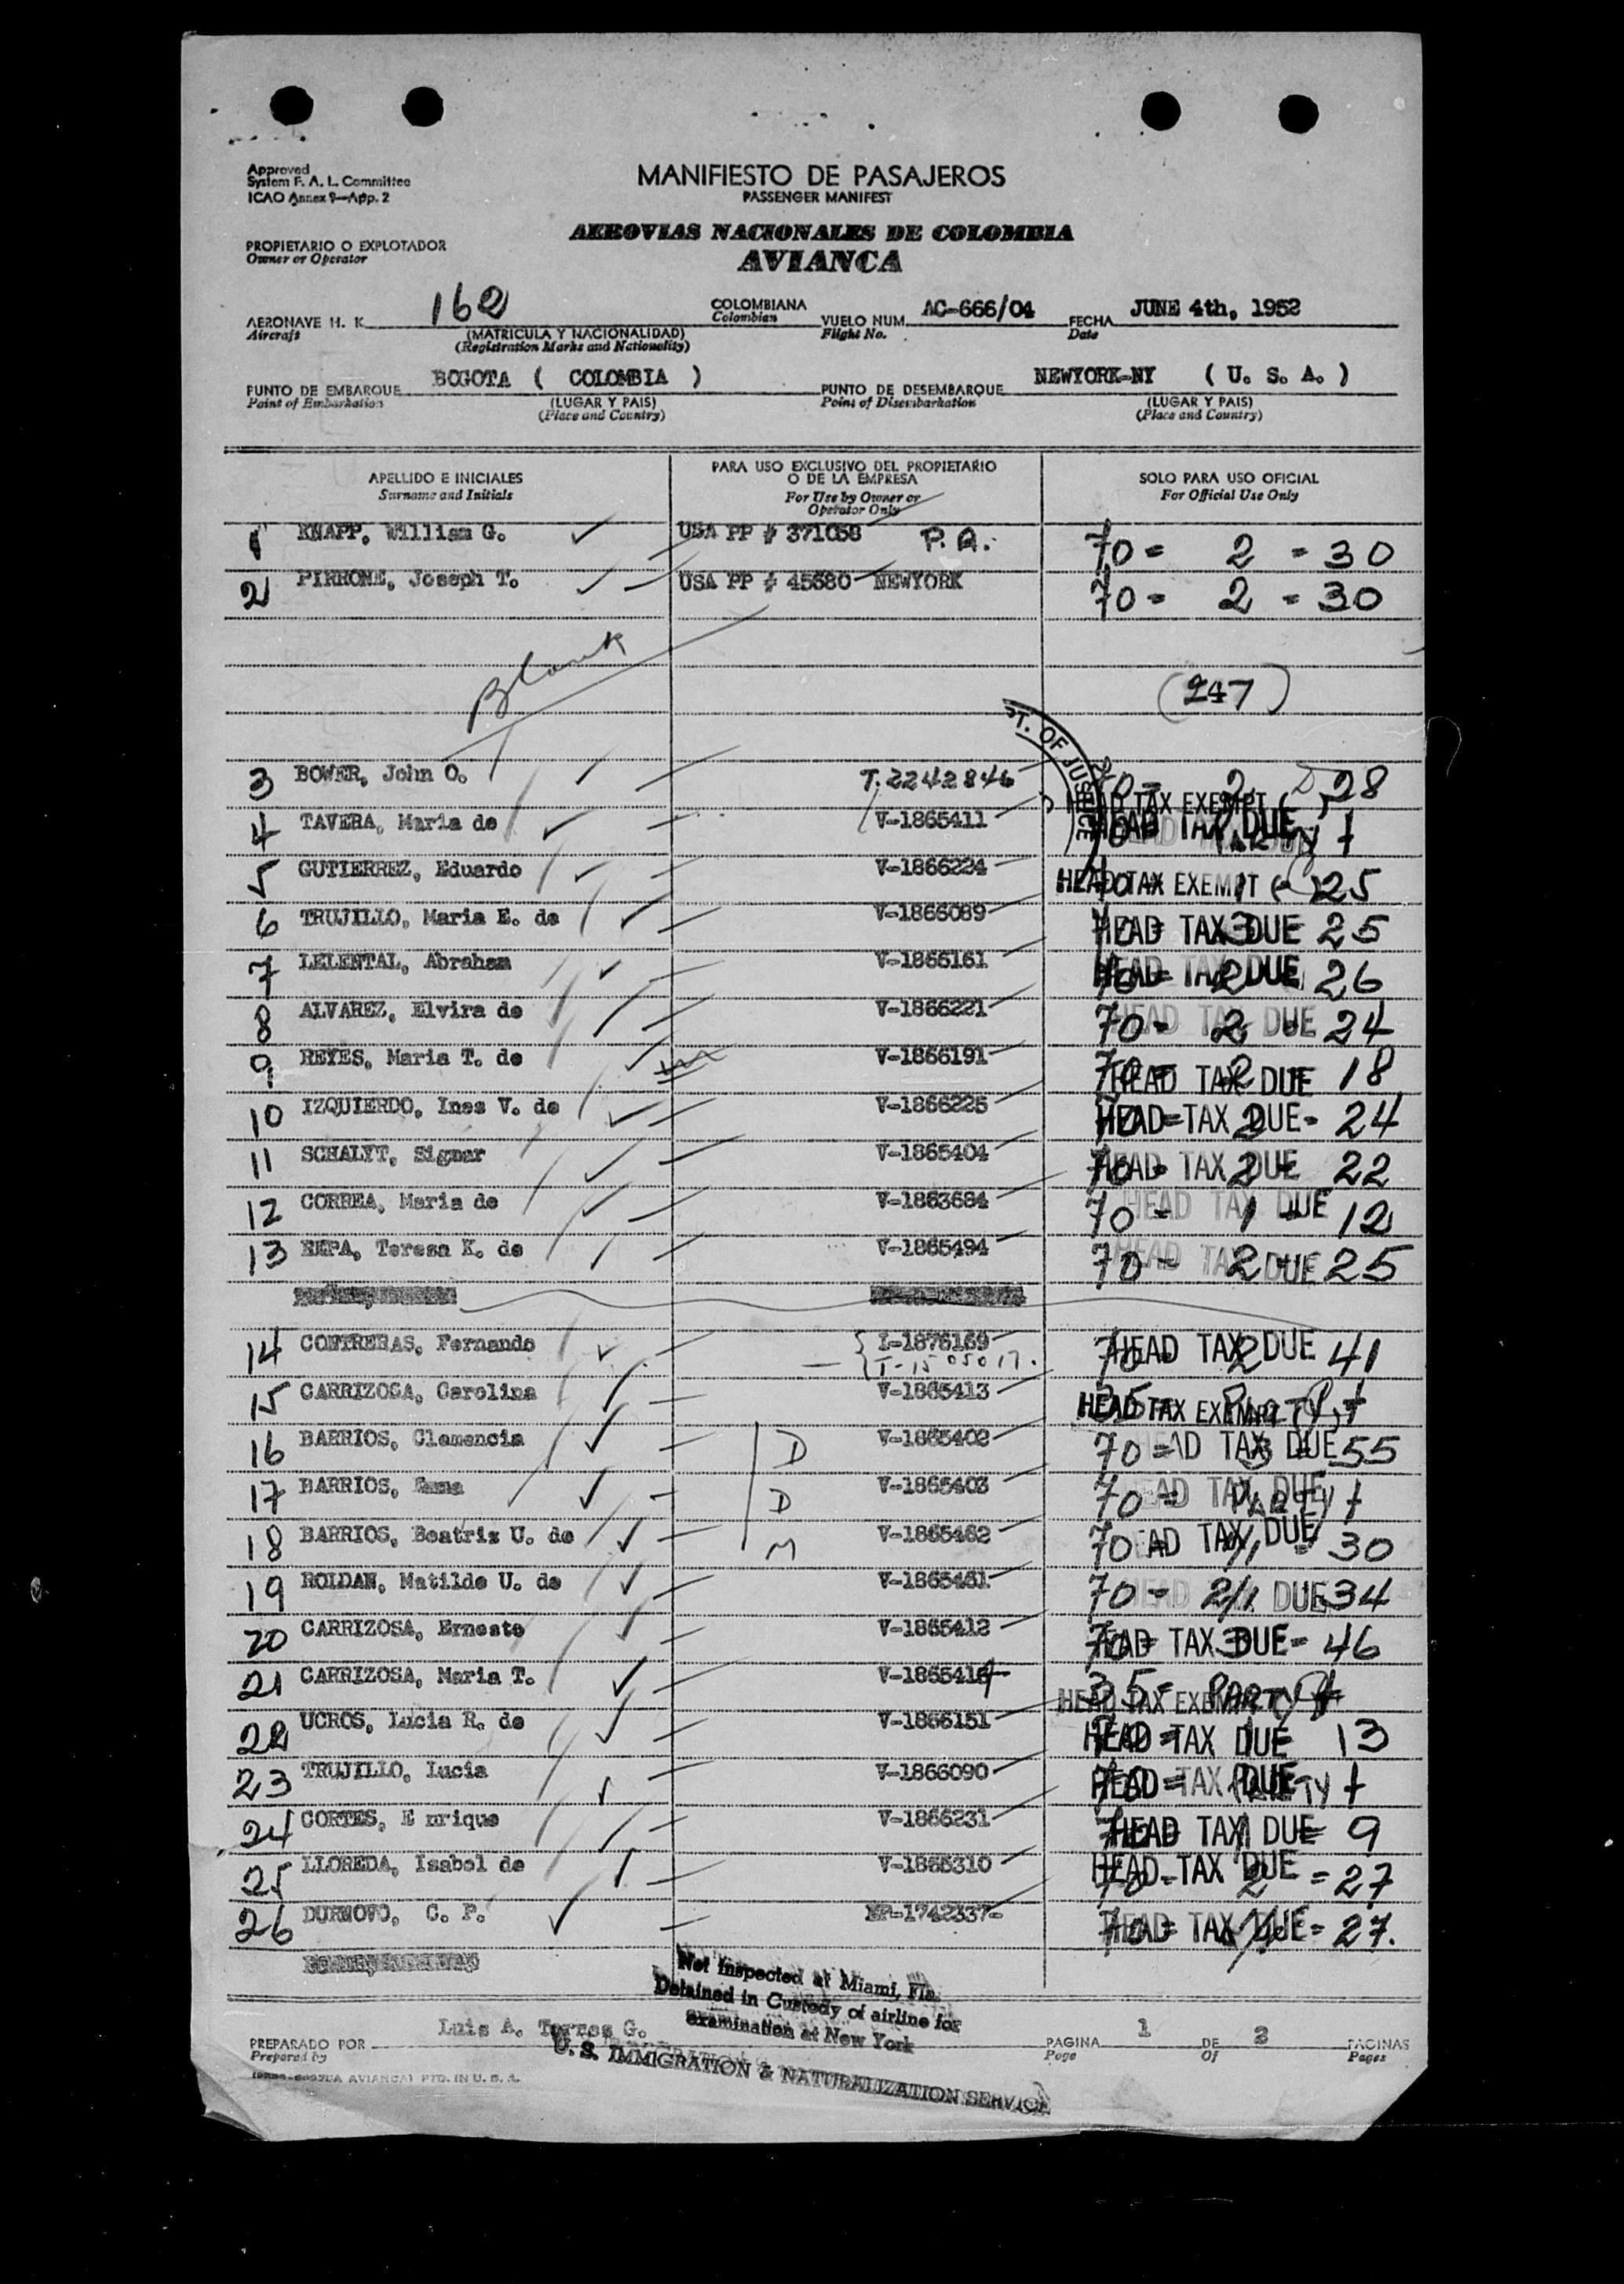 Approved
System F. A. L. Committee
ICAO Annex 9—App. 2
MANIFIESTO DE PASAJEROS
PASSENGER MANIFEST
AEROVIAS NACIONALES DE COLOMBIA
AVIANCA
PROPIETARIO O EXPLOTADOR
Owner or Operator
AERONAVE H. K. 162 COLOMBIANA VUELO NUM. AC-666/04 FECHA JUNE 4th, 1952
Aircraft (MATRICULA Y NACIONALIDAD) Colombian Flight No. Date
(Registration Marks and Nationality)
PUNTO DE EMBARQUE BOGOTA ( COLOMBIA ) PUNTO DE DESEMBARQUE NEWYORK-NY ( U. S. A. )
Point of Embarkation (LUGAR Y PAIS) Point of Disembarkation (LUGAR Y PAIS)
(Place and Country) (Place and Country)
APELLIDO E INICIALES PARA USO EXCLUSIVO DEL PROPIETARIO O DE LA EMPRESA SOLO PARA USO OFICIAL
Surname and Initials For Use by Owner or Operator Only For Official Use Only
1 KNAPP, William G. USA PP # 371058 P.A. 70 = 2 = 30
2 PIRRONE, Joseph T. USA PP # 45680 NEWYORK 70 = 2 = 30
Blank
(247)
T. OF JUSTICE
3 BOWER, John O. T.2242846 70 = 2 28
HEAD TAX EXEMPT
4 TAVERA, Maria de V-1865411 HEAD TAX DUE
5 GUTIERREZ, Eduardo V-1866224 HEAD TAX EXEMPT 25
6 TRUJILLO, Maria E. de V-1866089 HEAD TAX DUE 25
7 LELENTAL, Abraham V-1866161 HEAD TAX DUE 26
8 ALVAREZ, Elvira de V-1866221 70 = 2 HEAD TAX DUE 24
9 REYES, Maria T. de V-1866191 HEAD TAX DUE 18
10 IZQUIERDO, Ines V. de V-1866225 HEAD TAX DUE 24
11 SCHALYT, Sigmar V-1865404 HEAD TAX DUE 22
12 CORREA, Maria de V-1863684 70 = 1 HEAD TAX DUE 12
13 Teresa K. de V-1865494 70 = 2 HEAD TAX DUE 25
14 CONTRERAS, Fernando I-1876169 HEAD TAX DUE 41
T-1505017.
15 CARRIZOSA, Carolina V-1865413 HEAD TAX EXEMPT
16 BARRIOS, Clemencia D V-1865402 70 = 3 HEAD TAX DUE 55
17 BARRIOS, D V-1865403 70 = HEAD TAX DUE PARTY
18 BARRIOS, Beatriz U. de M V-1865462 70 HEAD TAX DUE 30
19 ROLDAN, Matilde U. de V-1865461 70 = 2/1 HEAD DUE 34
20 CARRIZOSA, Ernesto V-1865412 HEAD TAX DUE 46
21 CARRIZOSA, Maria T. V-1865414 35 = PARTY
HEAD TAX EXEMPT
22 UCROS, Lucia R. de V-1866151 HEAD TAX DUE 13
23 TRUJILLO, Lucia V-1866090 HEAD TAX DUE PARTY
24 CORTES, E nrique V-1866231 HEAD TAX DUE 9
25 LLOREDA, Isabel de V-1865310 HEAD TAX DUE 2 = 27
26 DURNOVO, C. P. 1742337- HEAD TAX DUE = 27.
Not inspected at Miami, Fla.
Detained in Custody of airline for
examination at New York
U. S. IMMIGRATION & NATURALIZATION SERVICE
PREPARADO POR Luis A. Torres G. PAGINA 1 DE 2 PAGINAS
Prepared by Page Of Pages
AVIANCA) PTD. IN U. S. A.